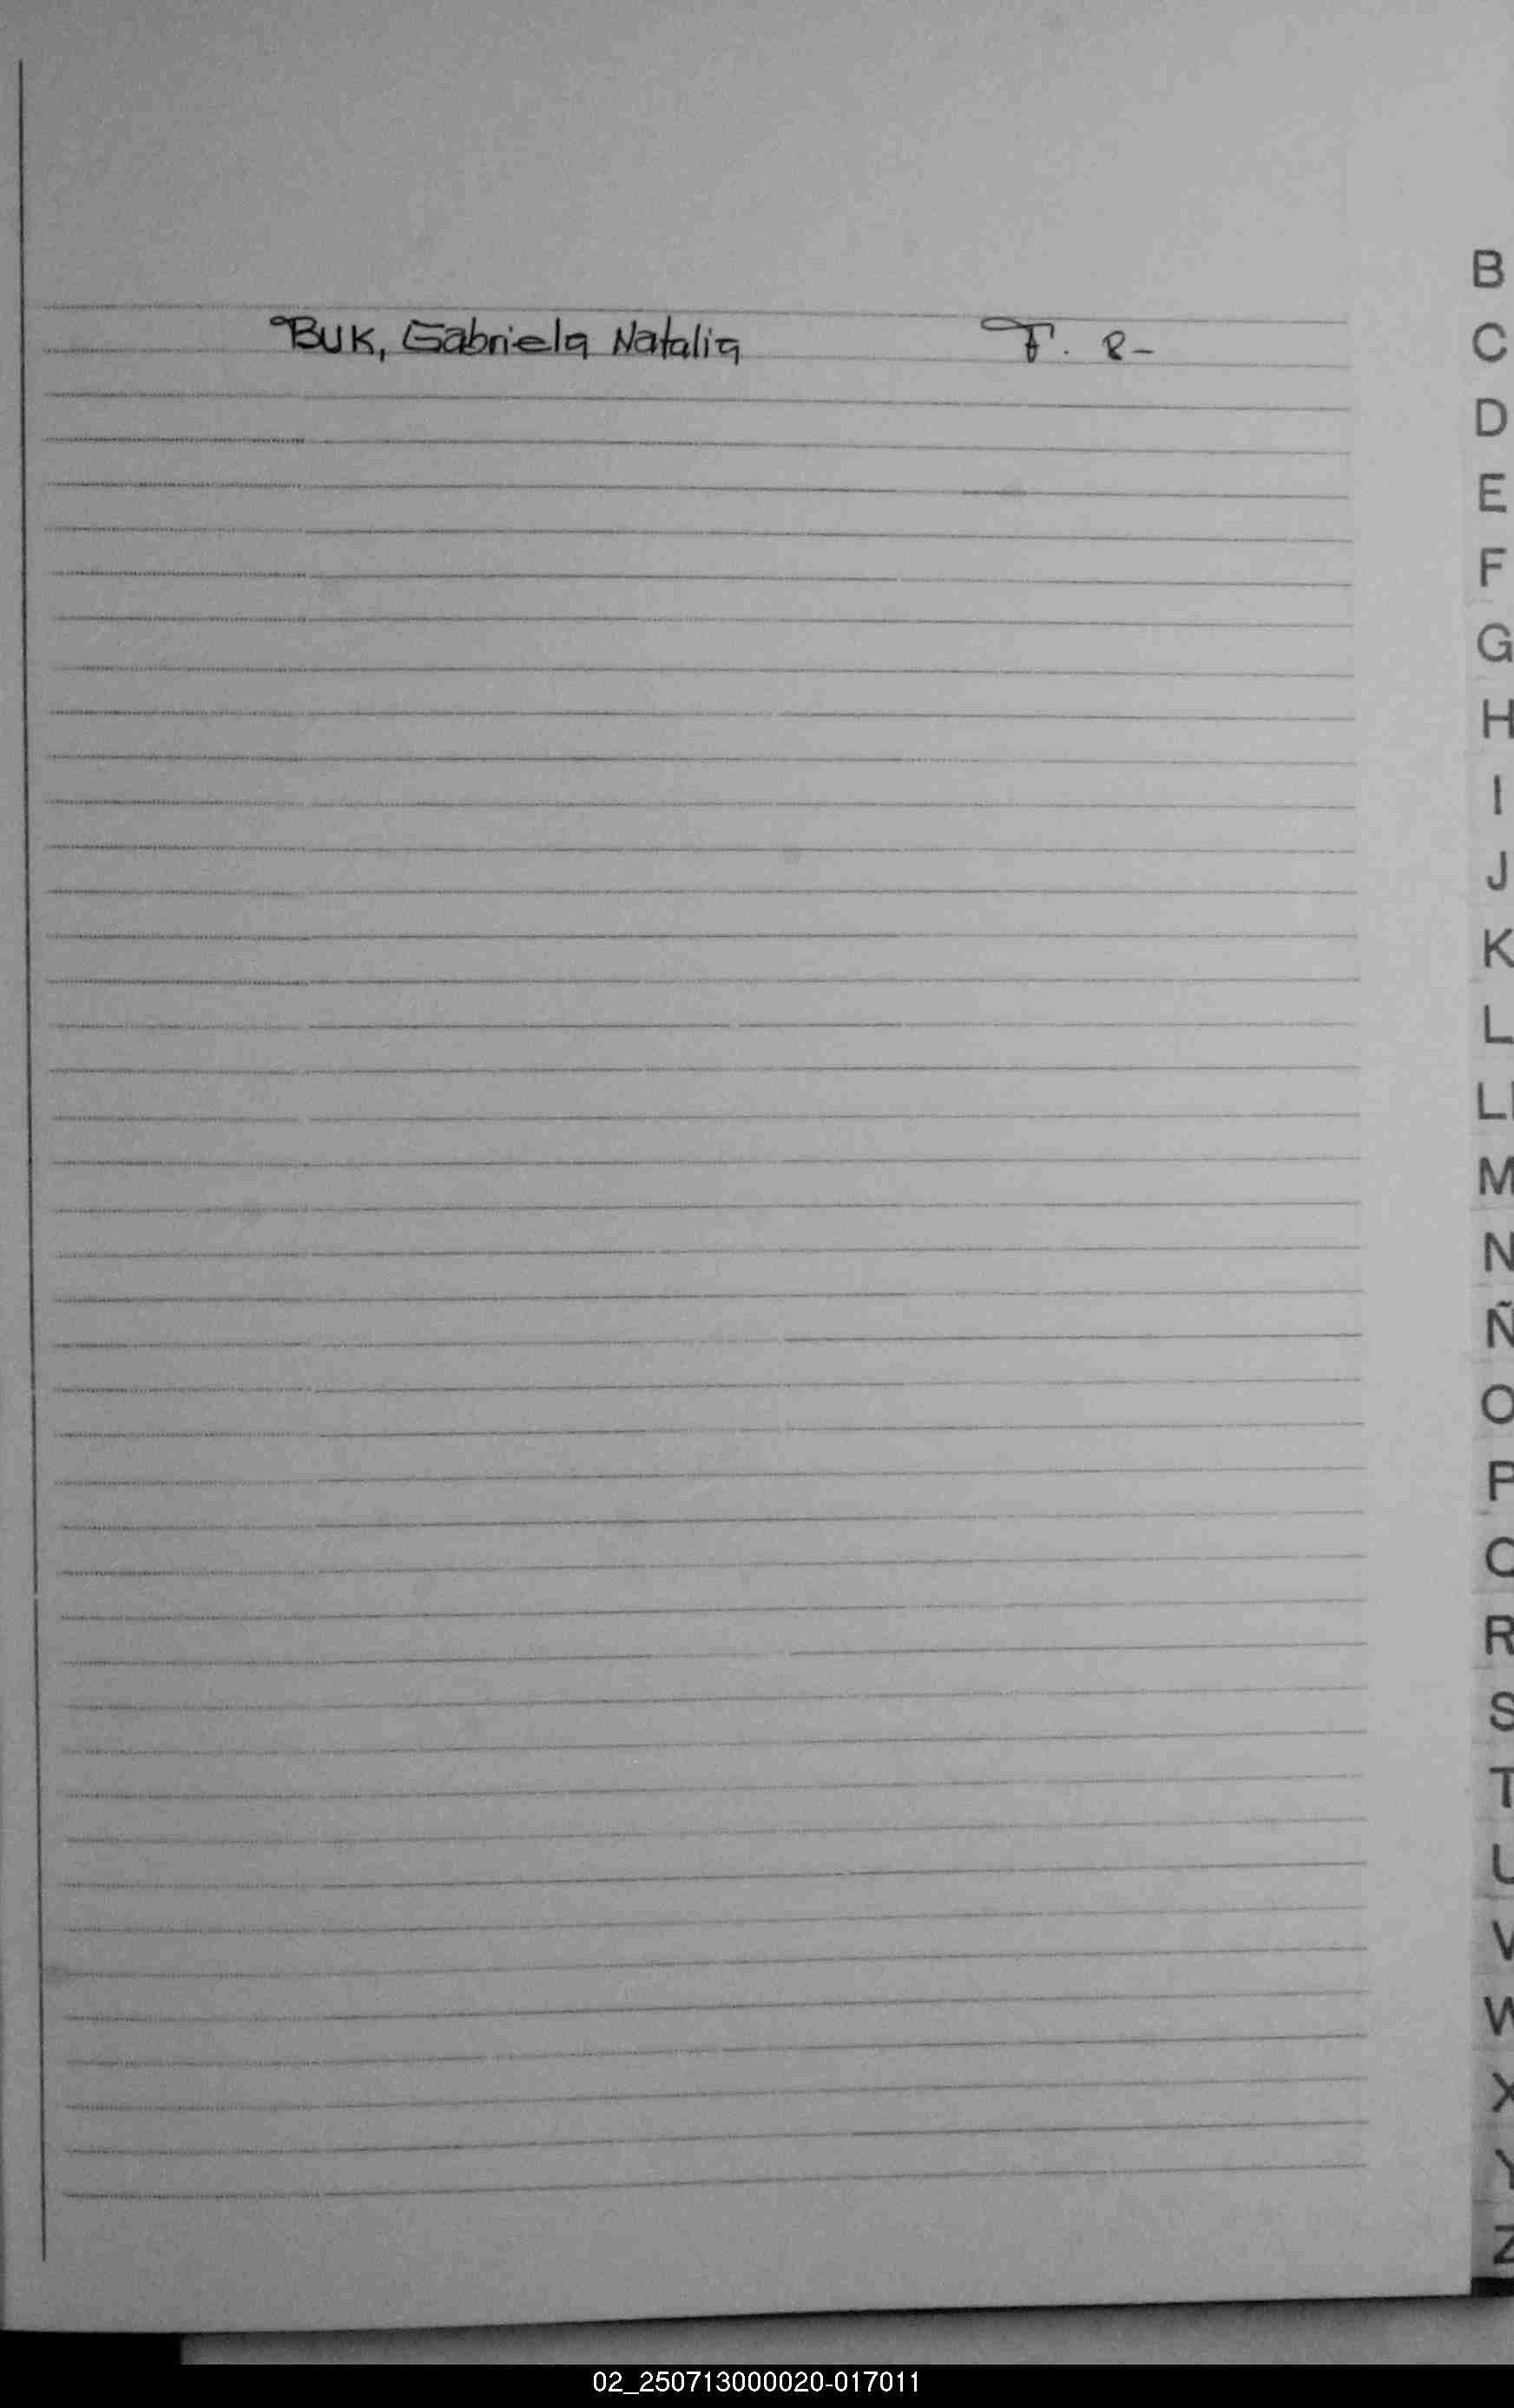 BUK, Gabriela Natalia F. 8-
B
C
D
E
F
G
H
I
J
K
L
Ll
M
N
Ñ
O
P
Q
R
S
T
U
V
W
X
Y
Z
02_250713000020-017011